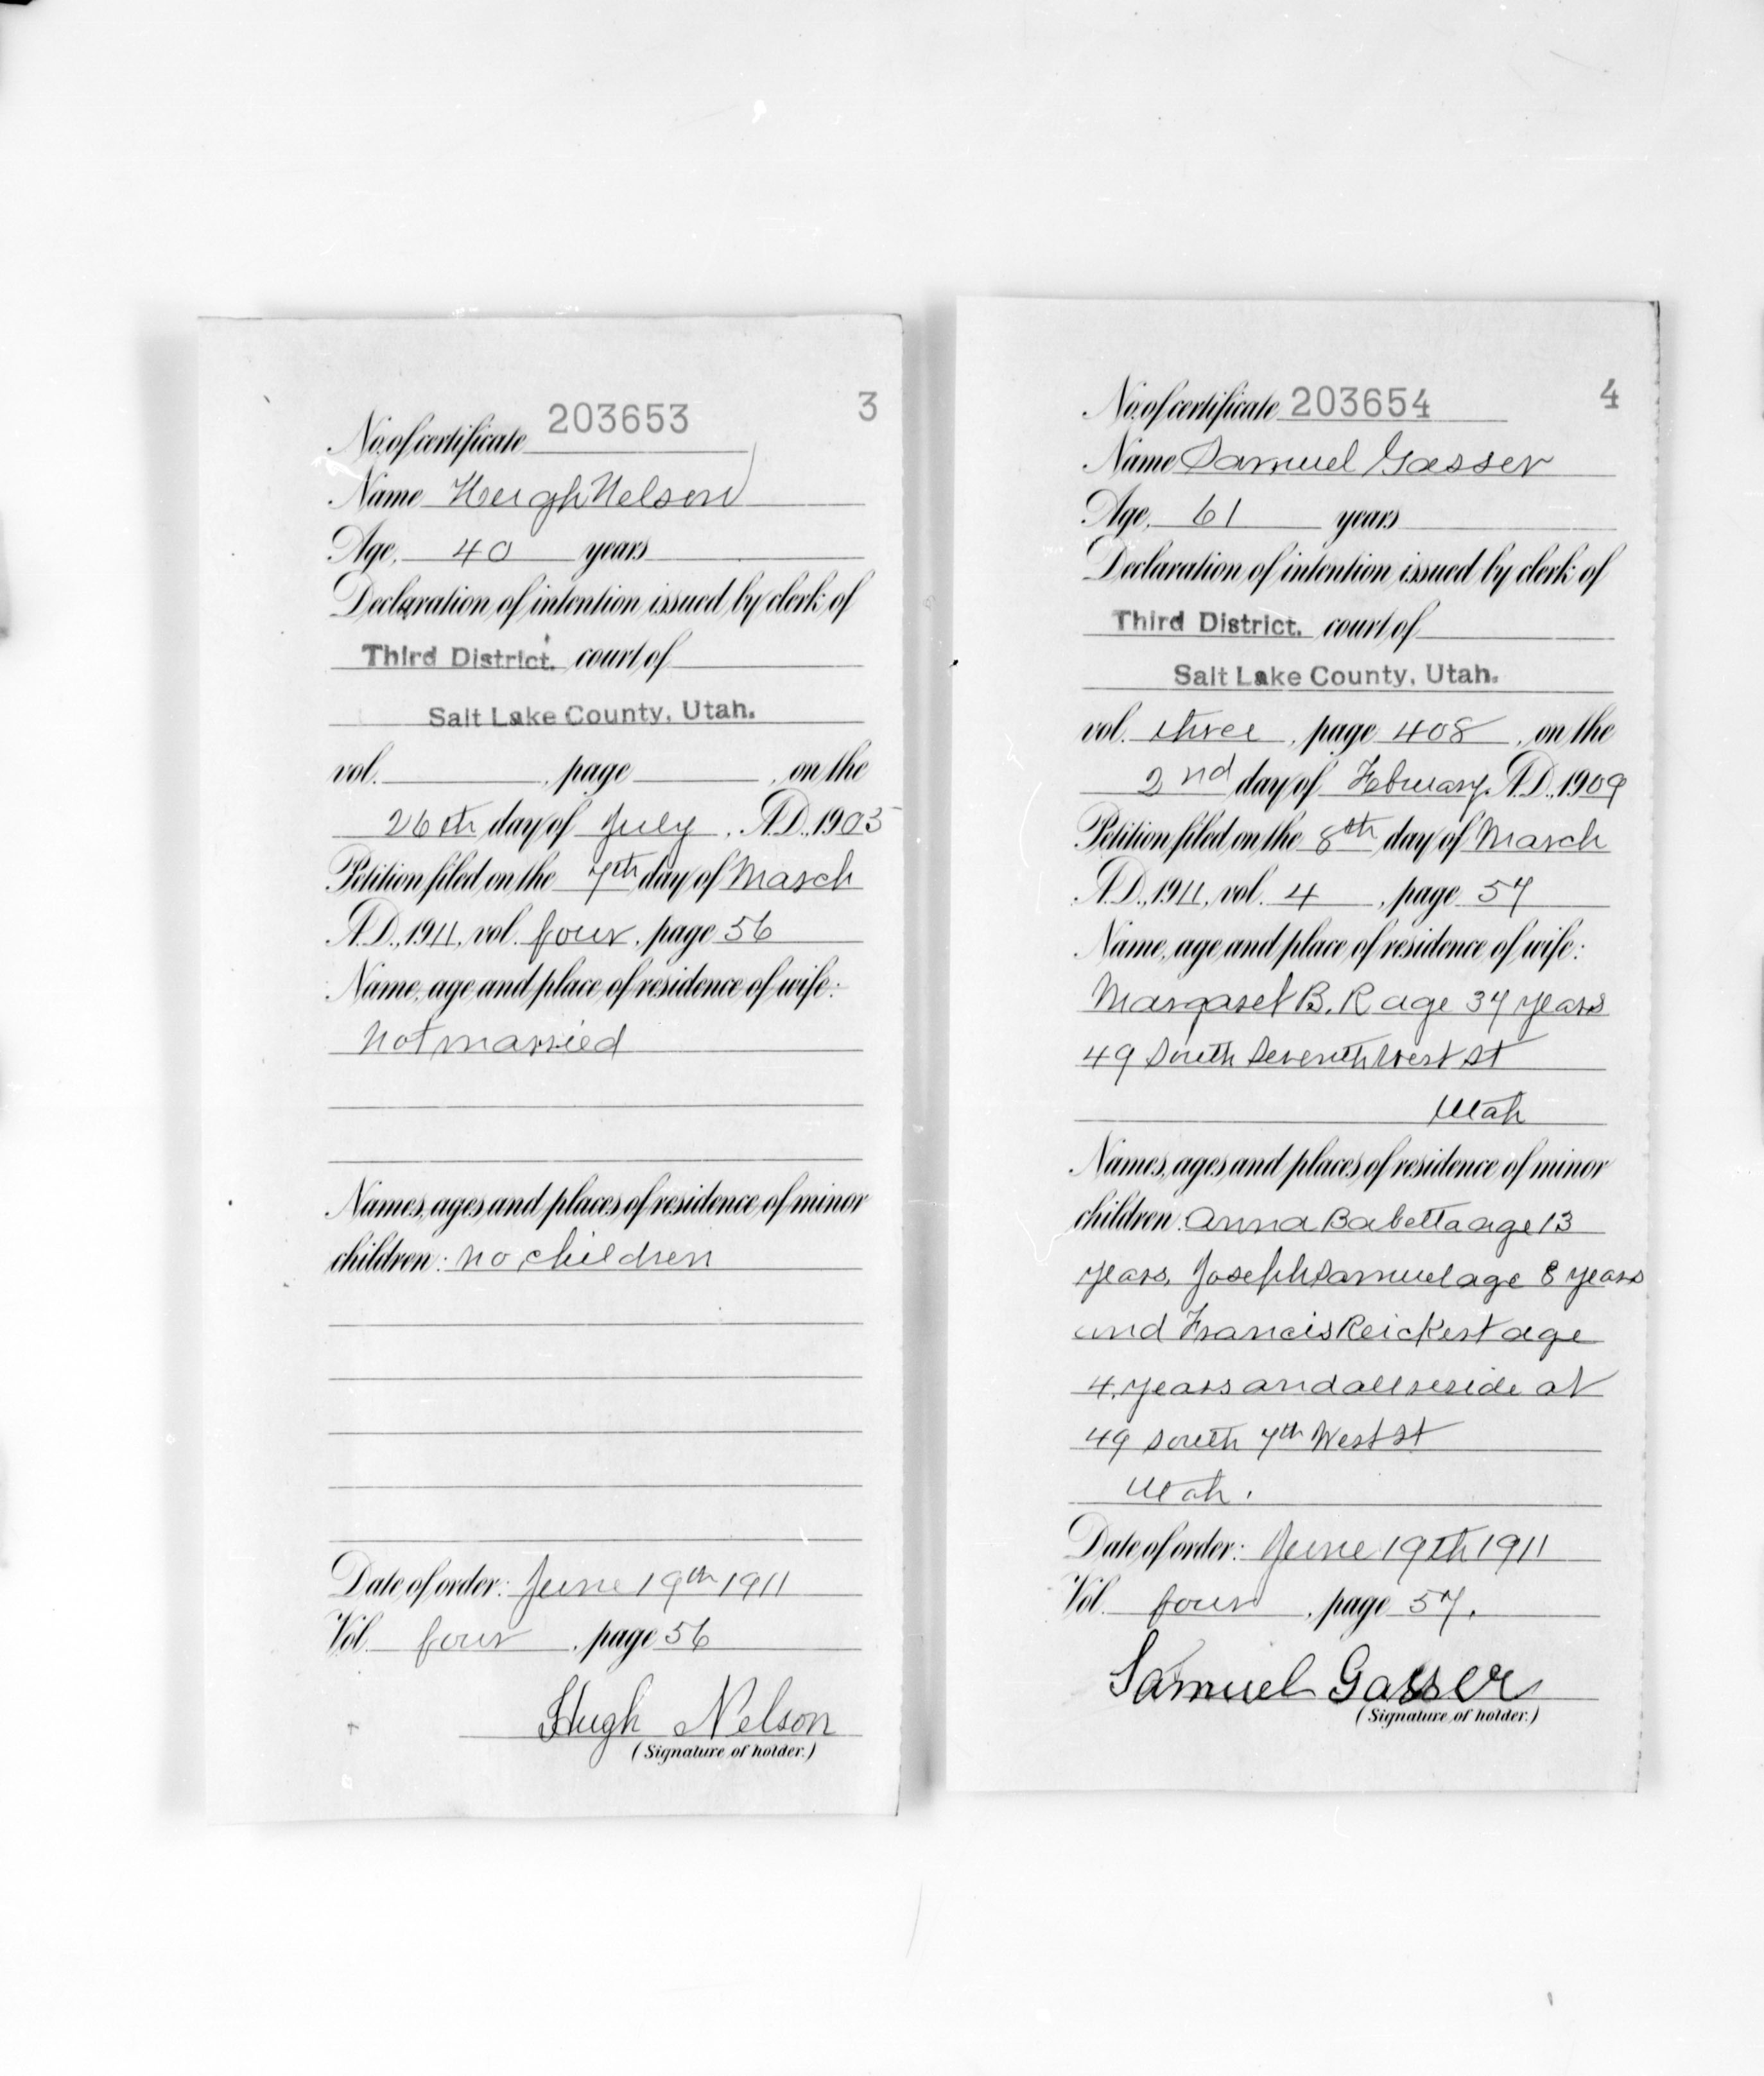 3
No. of certificate 203653
Name Hugh Nelson
Age, 40 years
Declaration of intention issued by clerk of
Third District. court of
Salt Lake County, Utah.
vol. , page , on the
26th day of July, A.D., 1905
Petition filed on the 7th day of March
A.D., 1911, vol. four, page 56
Name, age and place of residence of wife:
Not married
Names, ages and places of residence of minor
children: no children
Date of order: June 19th 1911
Vol. four, page 56
Hugh Nelson
(Signature of holder.)
4
No. of certificate 203654
Name Samuel Gasser
Age, 61 years
Declaration of intention issued by clerk of
Third District. court of
Salt Lake County, Utah.
vol. three, page 408, on the
2nd day of February. A.D., 1909
Petition filed on the 8th day of March
A.D., 1911, vol. 4, page 57
Name, age and place of residence of wife:
Margaret B. R age 37 years
49 South Seventh West St
Utah
Names, ages and places of residence of minor
children: Anna Babetta age 13
years, Joseph Samuel age 8 years
and Francis Reickert age
4, years and all reside at
49 South 7th West St
Utah.
Date of order: June 19th 1911
Vol. four, page 57.
Samuel Gasser
(Signature of holder.)